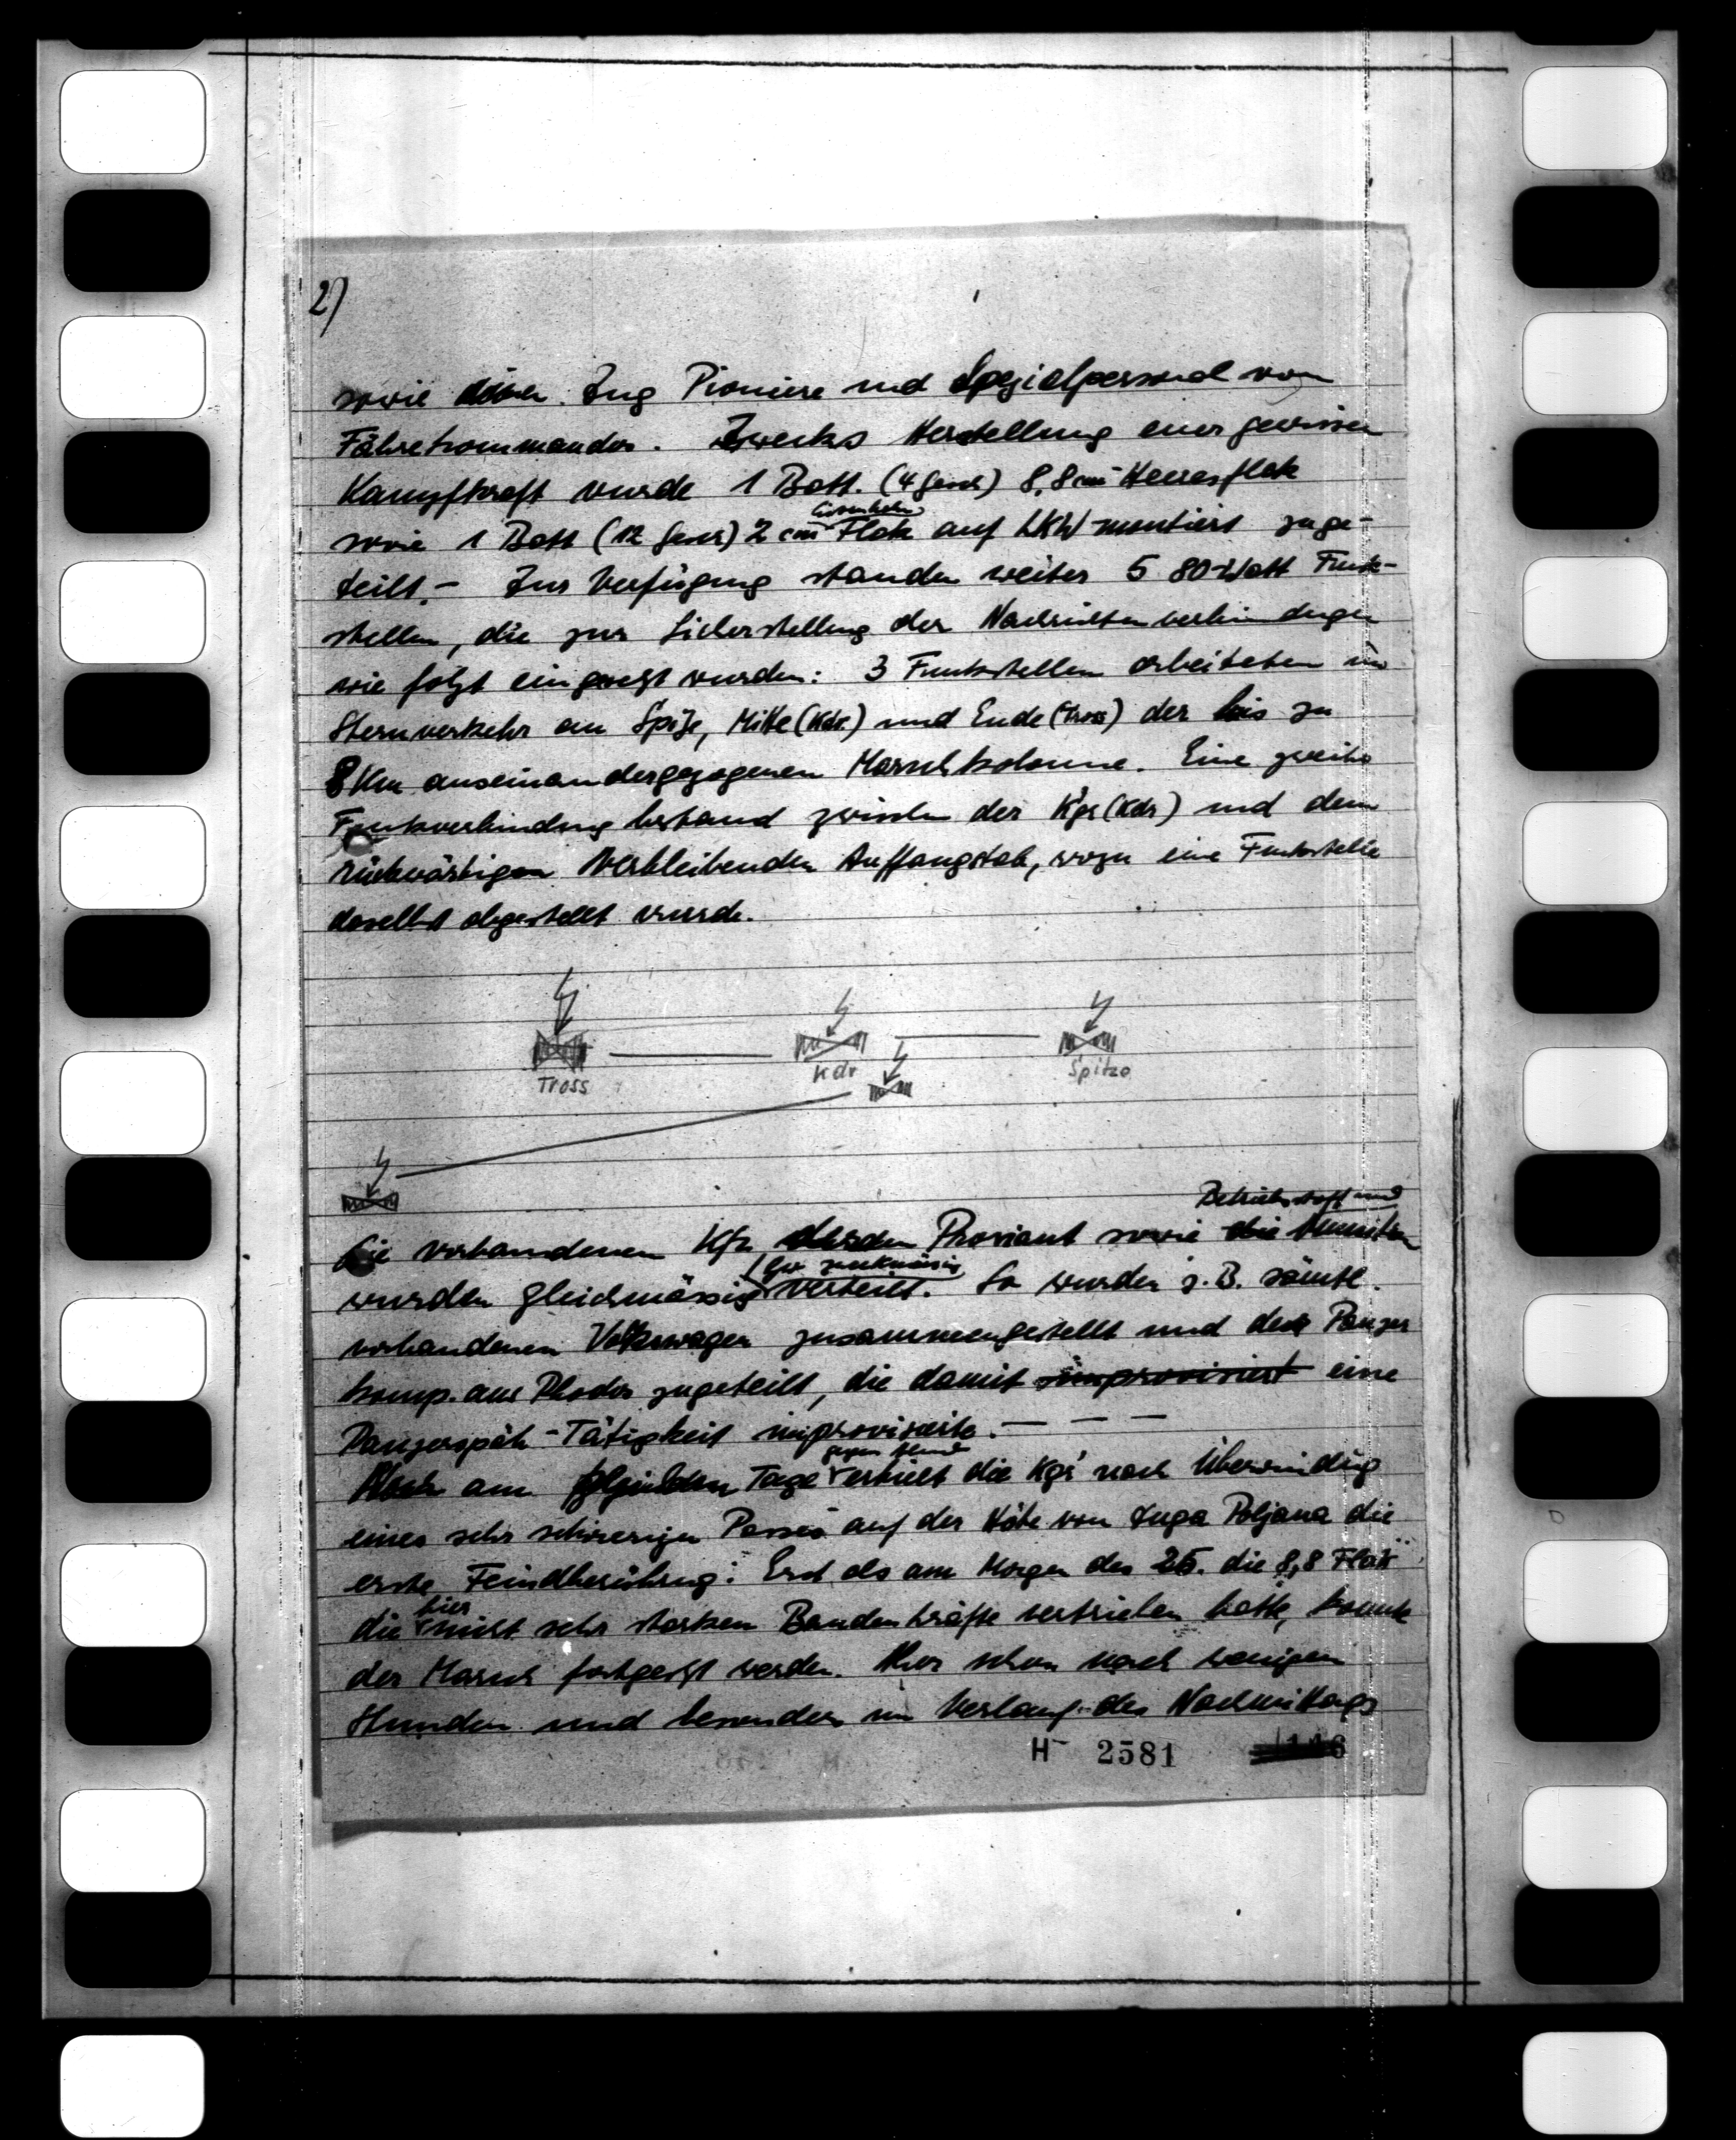 2)
sowie einen Zug Pioniere und Spezialpersonal vom
Fährkommandos. Zwecks Herstellung einer gewissen
Kampfkraft wurde 1 Batt. (4 Gesch) 8,8 cm Heeresflak
sowie 1 Batt (12 Gesch) 2 cm Flak auf LKW montiert zuge-
teilt. – Zur Verfügung standen weiter 5 80-Watt Funk-
stellen, die zur Sicherstellung der Nachrichtenverbindungen
wie folgt eingesetzt wurden: 3 Funkstellen arbeiteten im
Sternverkehr an Spitze, Mitte (Kdr.) und Ende (Tross) der bis zu
8 Km auseinandergezogenen Marschkolonne. Eine zweite
Funkverbindung bestand zwischen der Kgr (Kdr) und dem
rückwärtigen verbleibenden Auffangstab, wozu eine Funkstelle
daselbst abgestellt wurde.
Tross Kdr Spitze
Betriebsstoff und
Die vorhandenen Kfz, Proviant sowie die Munition
bzw. zweckmässig
wurden gleichmässig verteilt. So wurden z.B. sämtl.
vorhandenen Volkswagen zusammengestellt und der Panzer
komp. aus Rhodos zugeteilt, die damit improvisiert eine
Panzerspäh-Tätigkeit improvisierte. – – –
gegen Abend
Noch am gleichen Tage erhielt die Kgr nach Überwindung
eines sehr schwierigen Passes auf der Höhe von Duga Poljana die
erste Feindberührung: Erst als am Morgen des 25. die 8,8 Flak
hier
die meist sehr starken Bandenkräfte vertrieben hatte, konnte
der Marsch fortgesetzt werden. Aber schon nach wenigen
Stunden und besonders im Verlauf des Nachmittags
H 2581